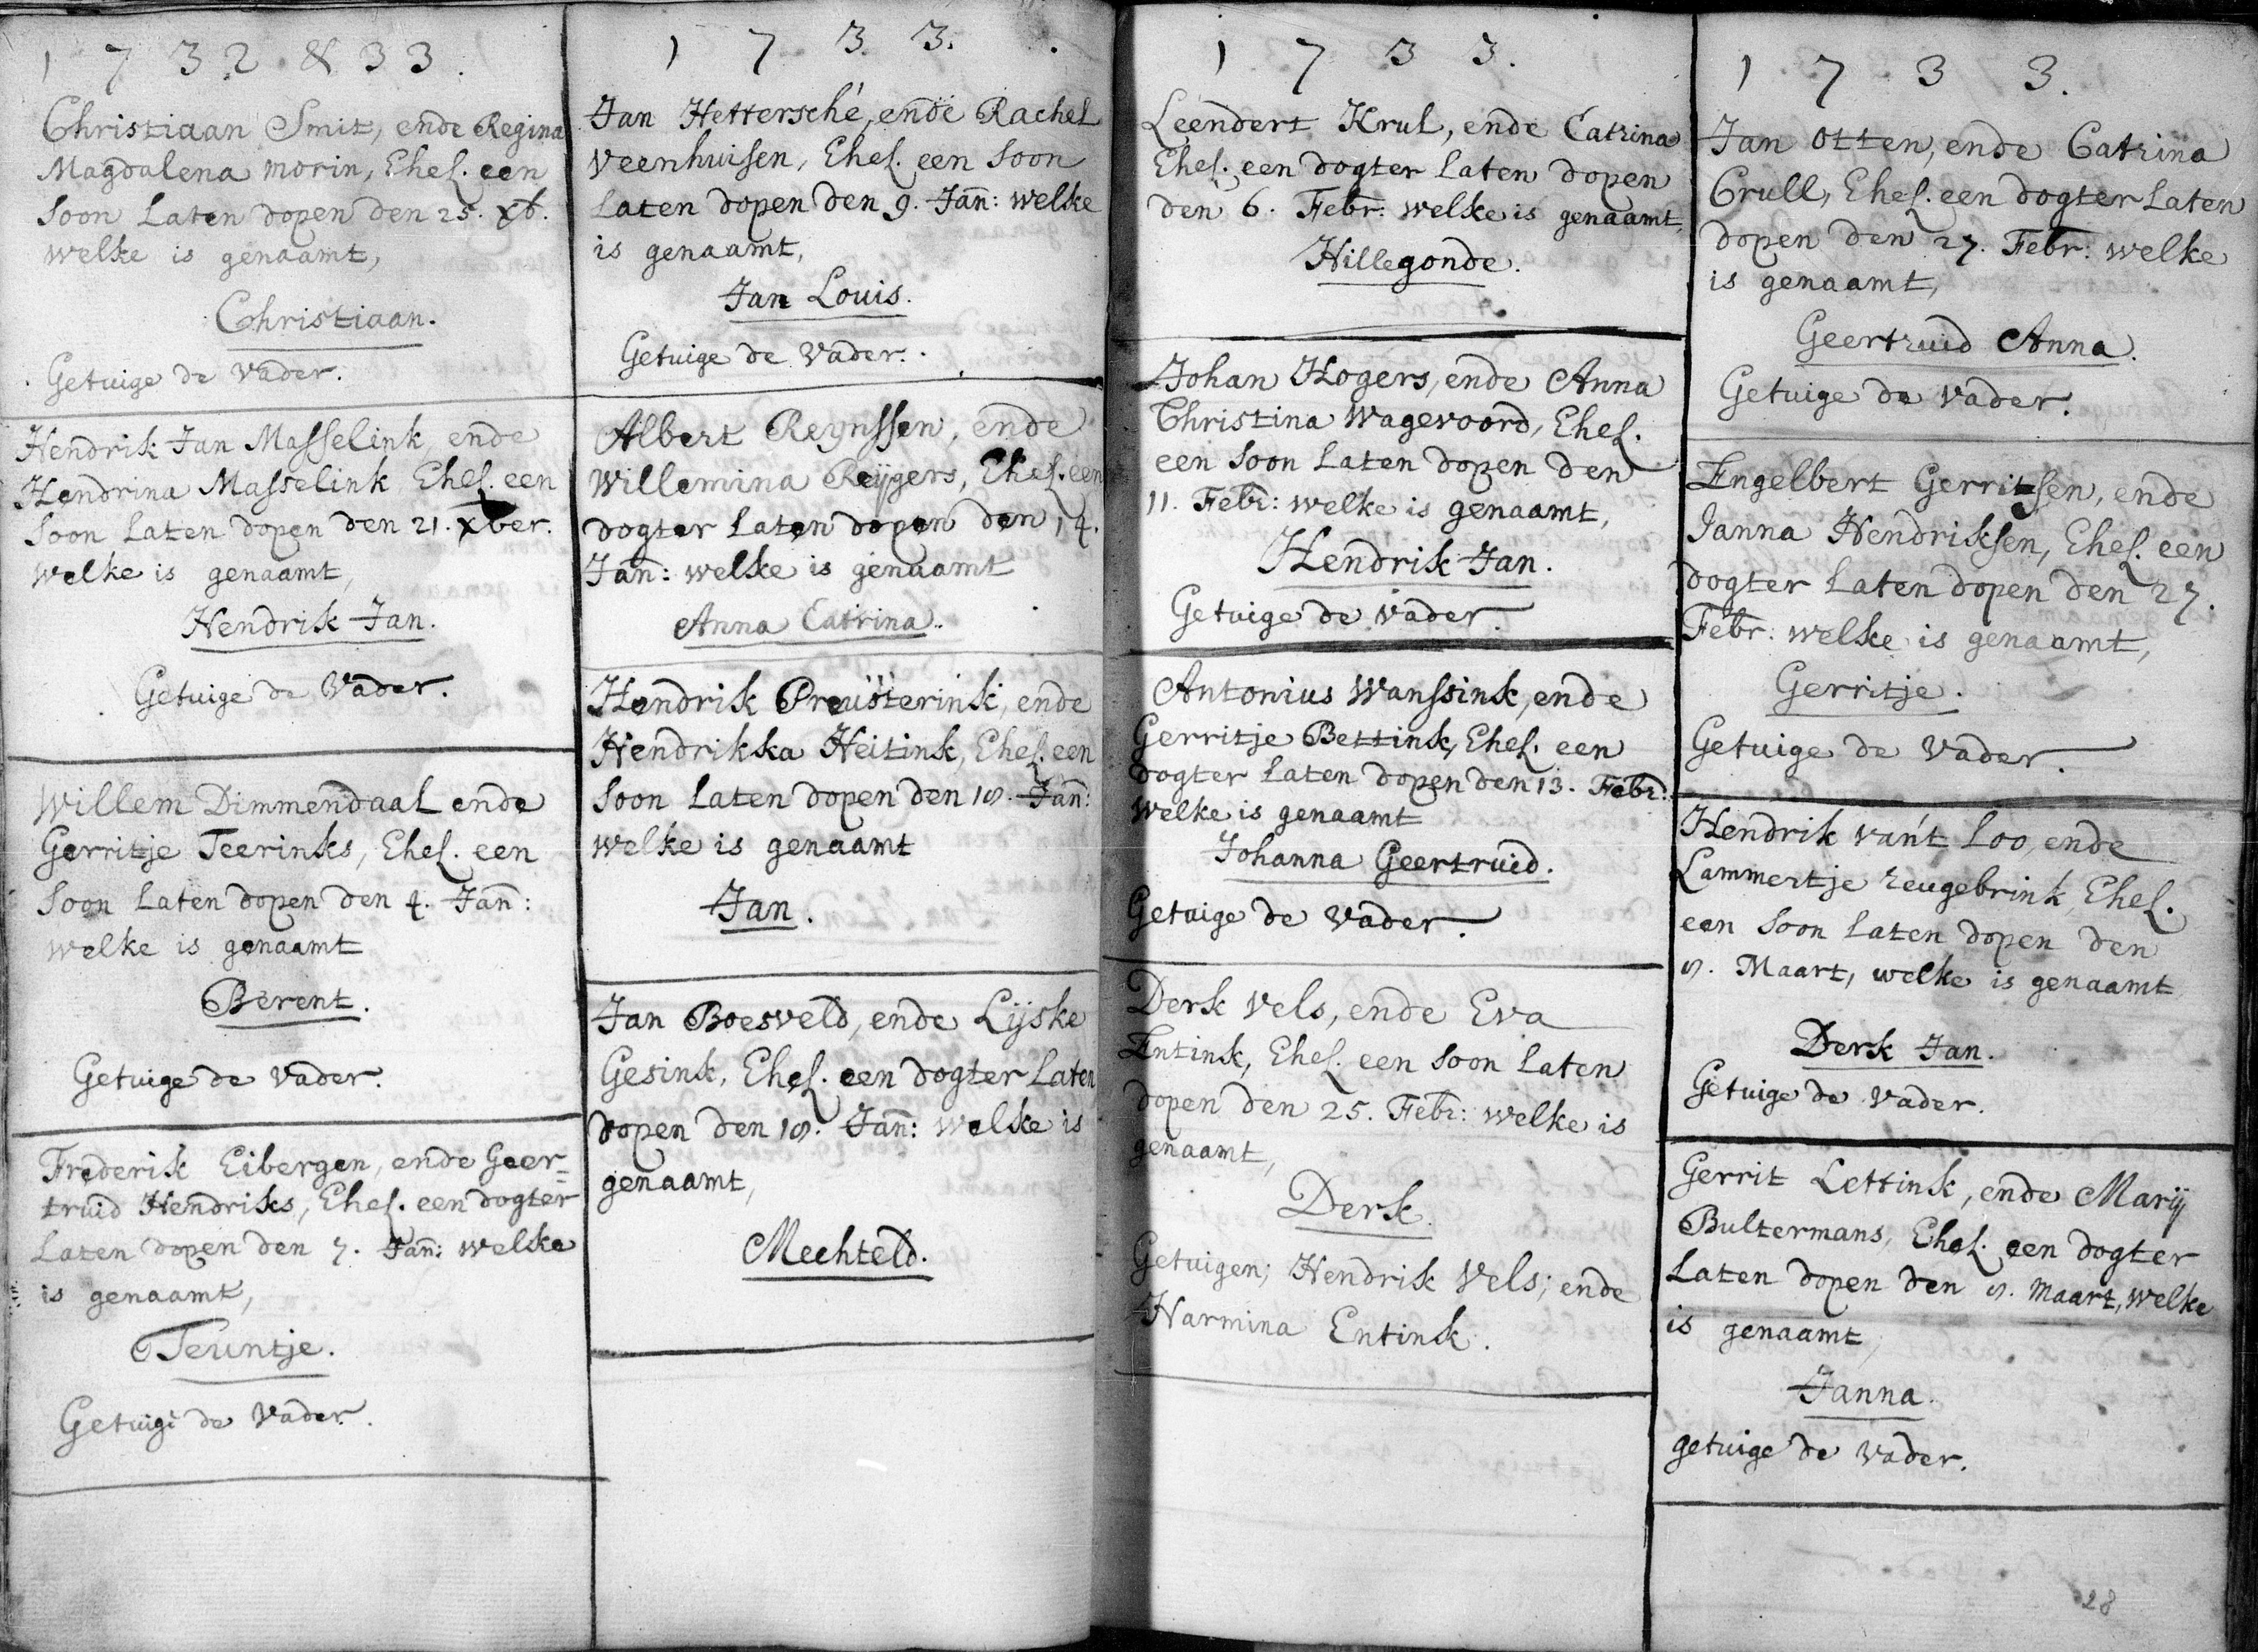 1732 & 33.
Christiaan Smit, ende Regina
Magdalena morin, Ehel. een
Soon Laten dopen den 25. xb.
welke is genaamt,
Christiaan.
Getuige de Vader.
Hendrik Jan Masselink, ende
Hendrina Masselink Ehel. een
Soon Laten dopen den 21. xber.
Welke is genaamt,
Hendrik Jan.
Getuige de Vader.
Willem Dimmendaal ende
Gerritje Teerinks, Ehel. een
Soon Laten dopen den 4. Jan:
welke is genaamt
Berent.
Getuige de Vader.
Frederik Eibergen, ende Geer=
truid Hendriks, Ehel. een dogter
Laten dopen den 7. Jan: welke
is genaamt,
Teuntje.
Getuige de Vader.
1733.
Jan Hettersché, ende Rachel
Veenhuisen, Ehel. een Soon
Laten dopen den 9. Jan: welke
is genaamt,
Jan Louis.
Getuige de Vader.
Albert Reynssen, ende
Willemina Reÿgers, Ehel. een
dogter Laten dopen den 14.
Jan: welke is genaamt
Anna Catrina.
Hendrik Preusterink, ende
Hendrikka Heitink, Ehel. een
Soon Laten dopen den 18. Jan:
welke is genaamt
Jan.
Jan Boesveld, ende Lijske
Gesink, Ehel. een dogter Laten
dopen den 18. Jan: welke is
genaamt,
Mechteld.
1733.
Leendert Krul, ende Catrina
Ehel. een dogter Laten dopen
den 6. Febr: welke is genaamt,
Hillegonde.
Johan Hogers, ende Anna
Christina Wagevoord, Ehel.
een Soon Laten dopen den
11. Febr: welke is genaamt,
Hendrik Jan.
Getuige de Vader.
Antonius Wanssink, ende
Gerritje Bettink, Ehel. een
dogter Laten dopen den 13. Febr:
welke is genaamt
Johanna Geertruid.
Getuige de Vader.
Derk Vels, ende Eva
Entink, Ehel. een Soon Laten
dopen den 25. Febr: welke is
genaamt,
Derk.
Getuigen; Hendrik Vels; ende
Harmina Entink.
1733.
Jan Otten, ende Catrina
Crull, Ehel. een dogter Laten
dopen den 27. Febr: welke
is genaamt,
Geertruid Anna.
Getuige de Vader.
Engelbert Gerritsen, ende
Janna Hendriksen, Ehel. een
dogter Laten dopen den 27.
Febr: welke is genaamt,
Gerritje.
Getuige de Vader.
Hendrik van't Loo, ende
Lammertje Zeugebrink Ehel.
een Soon Laten dopen den
8. Maart, welke is genaamt
Derk Jan.
Getuige de Vader.
Gerrit Lettink, ende Marij
Bultermans, Ehel. een dogter
Laten dopen den 8. Maart, welke
is genaamt,
Janna.
getuige de Vader.
28